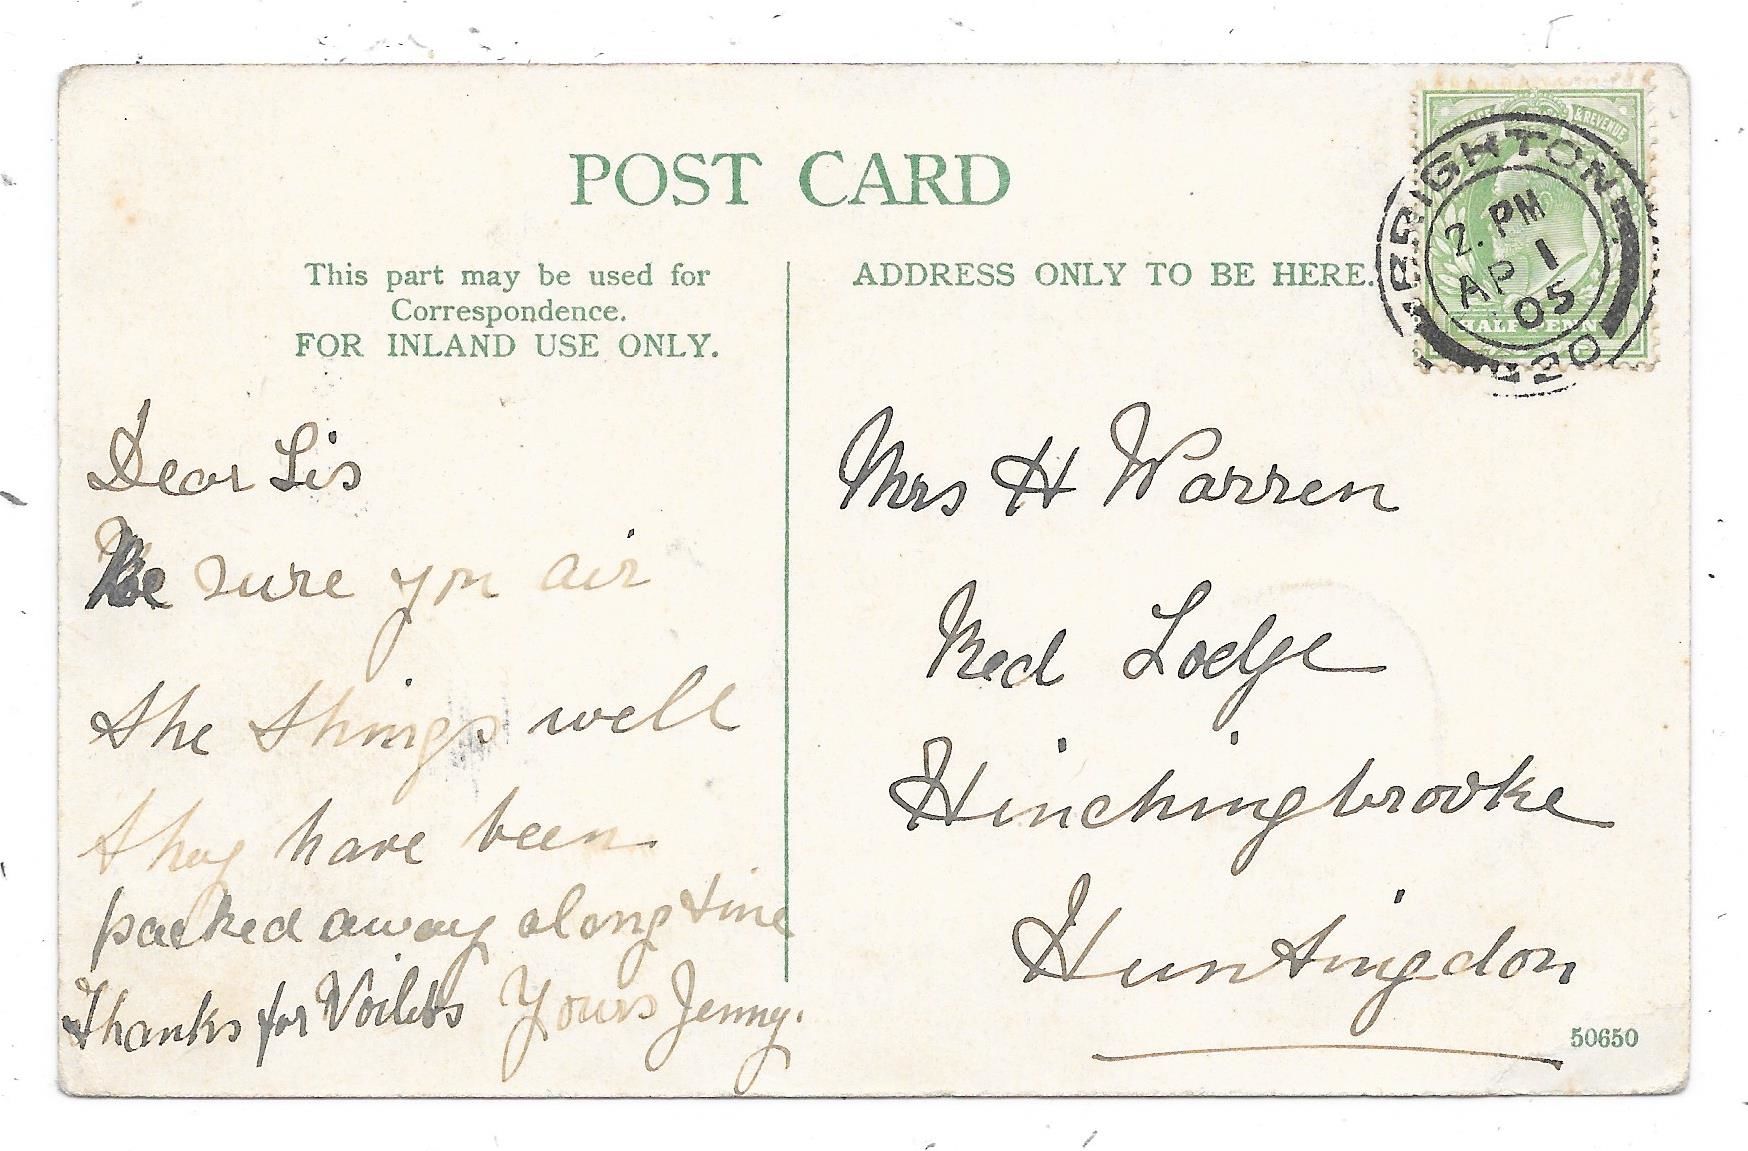 POST CARD
This part may be used for
Correspondence.
FOR INLAND USE ONLY.
ADDRESS ONLY TO BE HERE.
& REVENUE
HALFPENNY
BRIGHTON
2. PM
AP 1
05
Dear Sis
Be sure you air
the things well
they have been
packed away along time
Thanks for Voilets Yours Jenny.
Mrs H Warren
Red Lodge
Hinchingbrooke
Huntingdon
50650